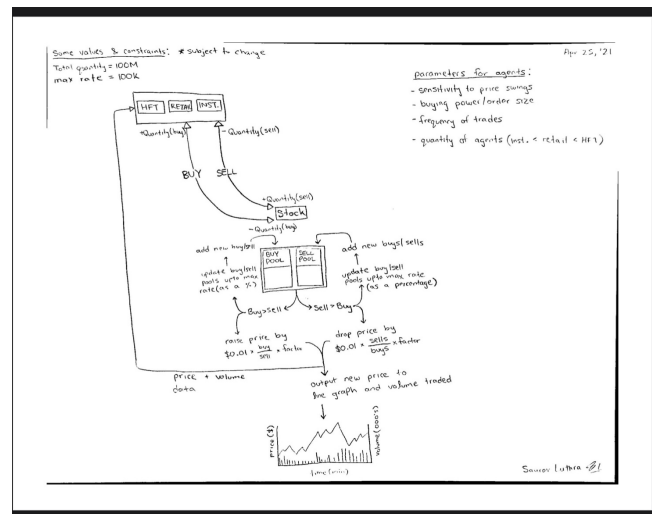 Some values & constraints: * subject to change
Apr 25, '21
Total quantity = 100M
max rate = 100k
parameters for agents:
- sensitivity to price swings
- buying power/order size
- frequency of trades
- quantity of agents (inst. < retail < HFT)
HFT RETAIL INST.
+Quantity(buy) - Quantity(sell)
BUY SELL
+Quantity(sell)
Stock
-Quantity(buy)
add new buy/sell
BUY POOL
SELL POOL
add new buys/sells
update buy/sell
pools upto max
rate (as a %)
update buy/sell
pools upto max rate
(as a percentage)
Buy>Sell
Sell>Buy
raise price by
$0.01 × buy/sell × factor
drop price by
$0.01 × sells/buys × factor
price + volume
data
output new price to
line graph and volume traded
price ($)
volume (000's)
time (min)
Saurav Luthra